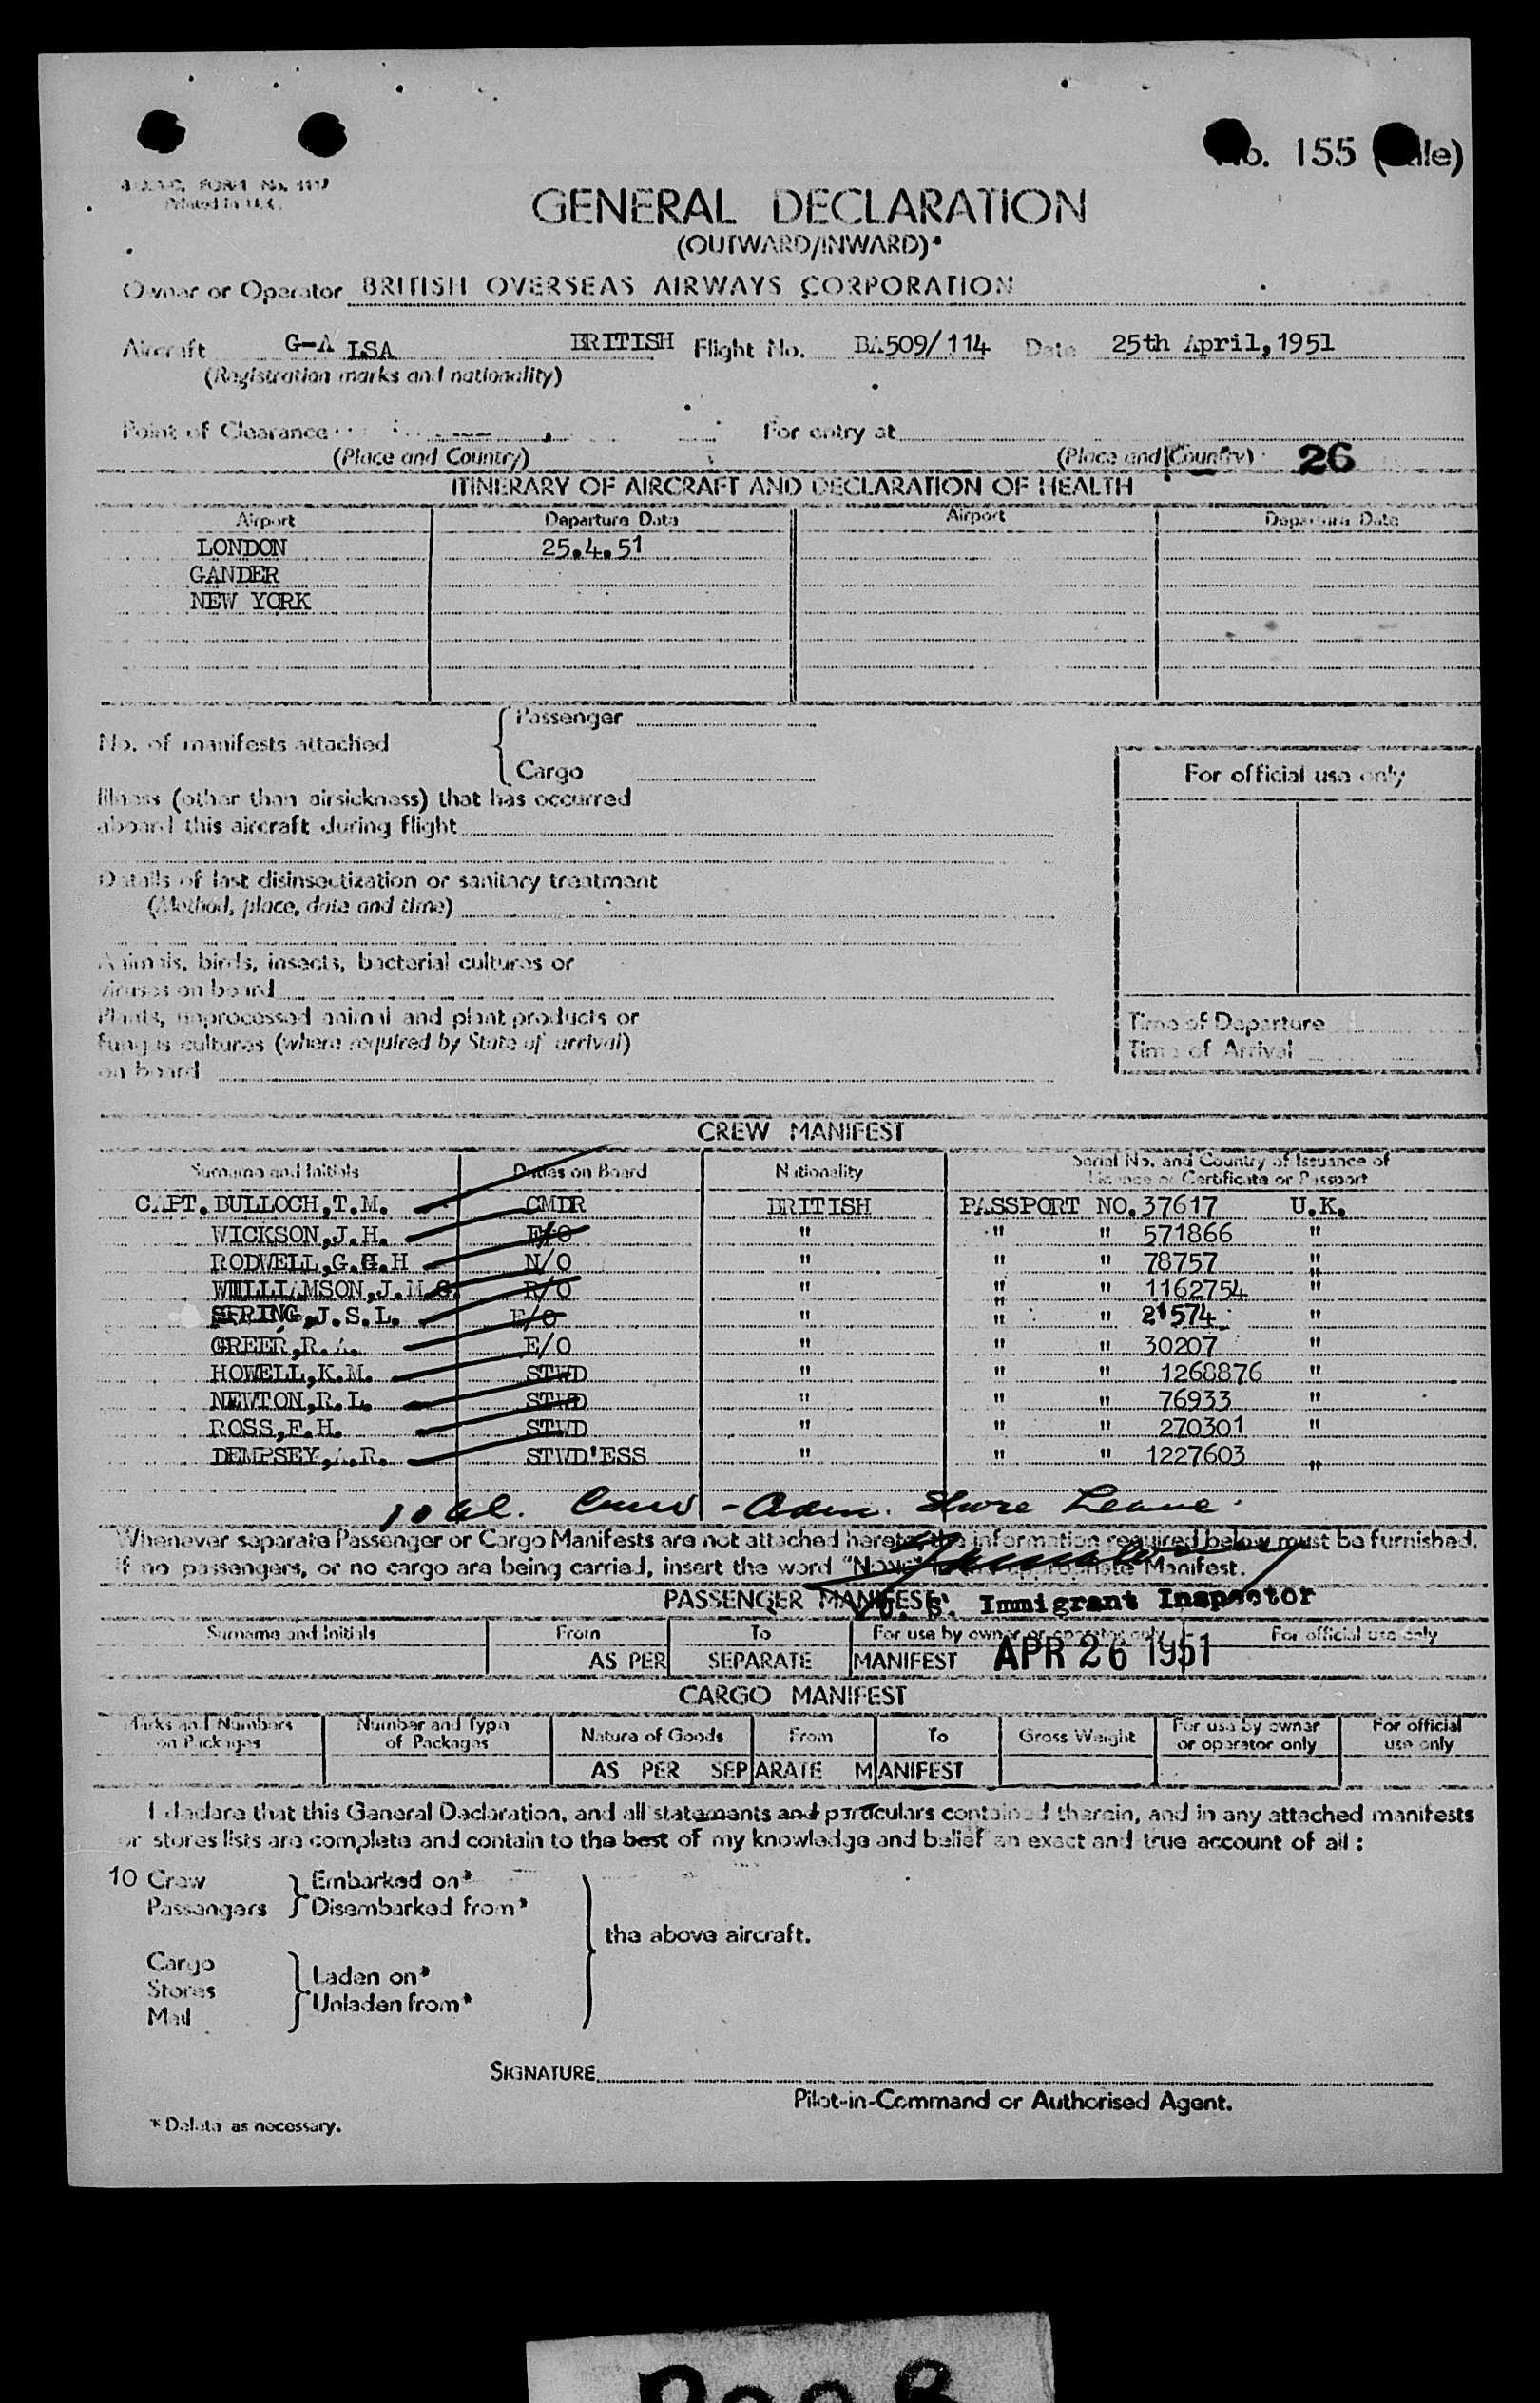 No. 155 (Sale)
B.O.A.C. FORM No. 1117
Printed in U.K.
GENERAL DECLARATION
(OUTWARD/INWARD)*
Owner or Operator BRITISH OVERSEAS AIRWAYS CORPORATION
Aircraft G-A LSA BRITISH Flight No. BA509/114 Date 25th April,1951
(Registration marks and nationality)
Point of Clearance For entry at
(Place and Country) (Place and Country) 26
ITINERARY OF AIRCRAFT AND DECLARATION OF HEALTH
Airport Departure Date Airport Departure Date
LONDON 25.4.51
GANDER
NEW YORK
No. of manifests attached { Passenger
Cargo
For official use only
Illness (other than airsickness) that has occurred
aboard this aircraft during flight
Details of last disinsectization or sanitary treatment
(Method, place, date and time)
Animals, birds, insects, bacterial cultures or
viruses on board
Plants, unprocessed animal and plant products or
fungus cultures (where required by State of arrival)
on board
Time of Departure
Time of Arrival
CREW MANIFEST
Surname and Initials Duties on Board Nationality Serial No. and Country of Issuance of
Licence or Certificate or Passport
CAPT. BULLOCH,T.M. CMDR BRITISH PASSPORT NO. 37617 U.K.
WICKSON,J.H. F/O " " " 571866 "
RODWELL,G.H.H N/O " " " 78757 "
WILLIAMSON,J.M.G. R/O " " " 1162754 "
SPRING,J.S.L. E/O " " " 21574 "
GREER,R.A. E/O " " " 30207 "
HOWELL,K.M. STWD " " " 1268876 "
NEWTON,R.L. STWD " " " 76933 "
ROSS,F.H. STWD " " " 270301 "
DEMPSEY,A.R. STWD'ESS " " " 1227603 "
10 al. Crew - Adm. Shore Leave.
Whenever separate Passenger or Cargo Manifests are not attached hereto, the information required below must be furnished.
If no passengers, or no cargo are being carried, insert the word "None" in the appropriate Manifest.
PASSENGER MANIFEST
U. S. Immigrant Inspector
Surname and Initials From To For use by owner or operator only For official use only
AS PER SEPARATE MANIFEST APR 26 1951
CARGO MANIFEST
Marks and Numbers on Packages Number and Type of Packages Nature of Goods From To Gross Weight For use by owner or operator only For official use only
AS PER SEPARATE MANIFEST
I declare that this General Declaration, and all statements and particulars contained therein, and in any attached manifests
or stores lists are complete and contain to the best of my knowledge and belief an exact and true account of all :
10 Crew } Embarked on*
Passengers } Disembarked from*
the above aircraft.
Cargo
Stores } Laden on*
Mail } Unladen from*
SIGNATURE
Pilot-in-Command or Authorised Agent.
* Delete as necessary.